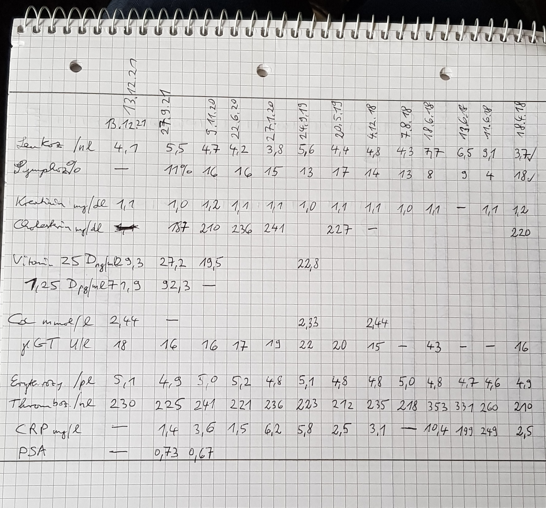 13.12.21
13.12.21 27.9.21 9.11.20 22.6.20 27.1.20 24.9.19 20.5.19 4.12.18 7.8.18 18.6.18 13.6.18 11.6.18 18.4.18
Leukoz /nl 4,1 5,5 4,7 4,2 3,8 5,6 4,4 4,8 4,3 7,7 6,5 9,1 3,7✓
Lymphoz% — 11% 16 16 15 13 17 14 13 8 9 4 18✓
Kreatinin mg/dl 1,1 1,0 1,2 1,1 1,1 1,0 1,1 1,1 1,0 1,1 — 1,1 1,2
Cholestrin mg/dl 187 210 236 241 227 — 220
Vitamin 25 D ng/ml 29,3 27,2 19,5 22,8
1,25 D pg/ml 71,9 92,3 —
Ca mmol/l 2,44 — 2,33 2,44
γGT U/l 18 16 16 17 19 22 20 15 — 43 — — 16
Erykrozy /pl 5,1 4,9 5,0 5,2 4,8 5,1 4,8 4,8 5,0 4,8 4,7 4,6 4,9
Thromboz /nl 230 225 241 221 236 223 212 235 218 353 331 260 210
CRP mg/l — 1,4 3,6 1,5 6,2 5,8 2,5 3,1 — 10,4 199 249 2,5
PSA — 0,73 0,67